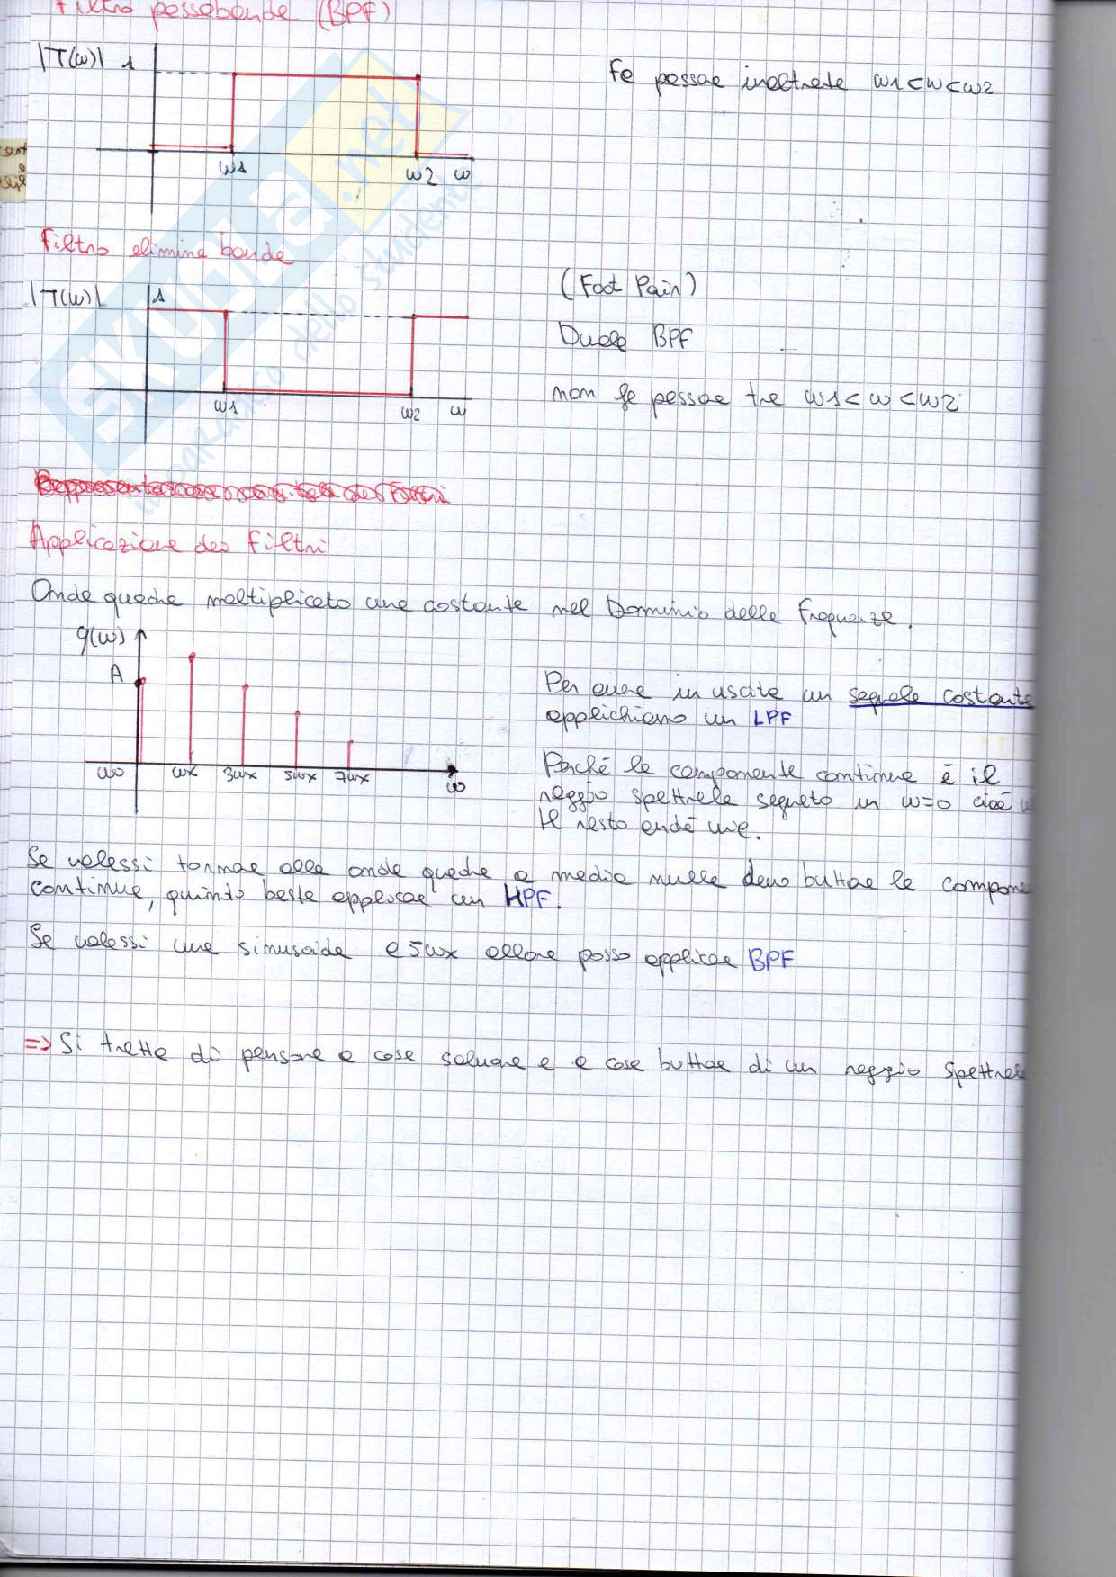 Filtro passabanda (BPF)
|T(ω)| 1
Fa passare inalterate ω1<ω<ω2
ω1 ω2 ω
Filtro elimina banda
(Foot Pain)
|T(ω)| 1
Duale BPF
non fa passare tra ω1<ω<ω2
ω1 ω2 ω
Applicazione dei filtri
Onda quadra moltiplicato una costante nel Dominio delle Frequenze.
g(ω)
A
Per avere in uscita un segnale costante
applichiamo un LPF
ω0 ωx 3ωx 5ωx 7ωx ω
Perché la componente continua è il
raggio spettrale segnato in ω=0 cioè
Il resto andrà via.
Se volessi tornare alla onda quadra a media nulla devo buttare la compone
continua, quindi basta applicare un HPF.
Se volessi una sinusoide a 5ωx allora posso applicare BPF
=> Si tratta di pensare a cosa salvare e a cosa buttare di un raggio spettrale
skuola.net
dello studente